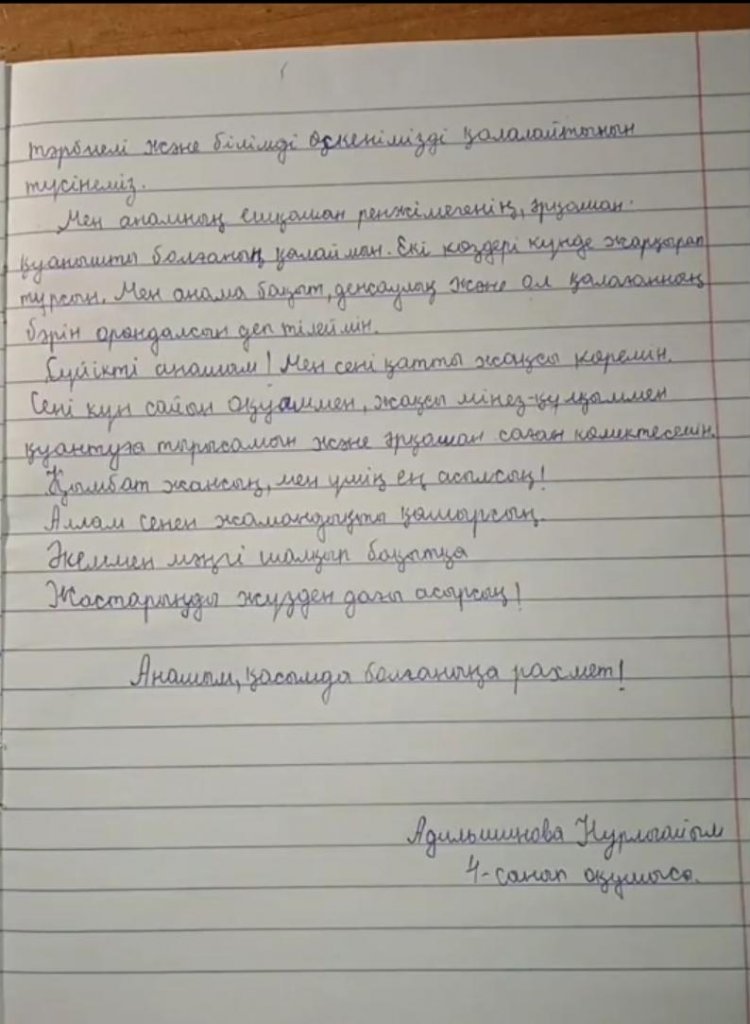 тәрбиелі және білімді өскенімізді қалалайтынын
түсінеміз.
Мен анамның ешқашан ренжімегенің, әрқашан
қуанышты болғаның қалаймын. Екі көздері күнде жарқырап
тұрсын. Мен анама бақыт, денсаулық және ол қалағанның
бәрін орындалсын деп тілеймін.
Сүйікті анашым! Мен сені қатты жақсы көремін.
Сені күн сайын оқуыммен, жақсы мінез-құлқыммен
қуантуға тырысамын және әрқашан саған көмектесемін.
Қымбат жансың, мен үшің ең асылсың!
Аллам сенен жамандықты қашырсың.
Әкеммен мәңгі шалқып бақытқа
Жастарыңды жүзден дағы асырсың!
Анашым, қасымда болғаныңа рахмет!
Адильшинова Нурлыайым
4-сынып оқушысы.